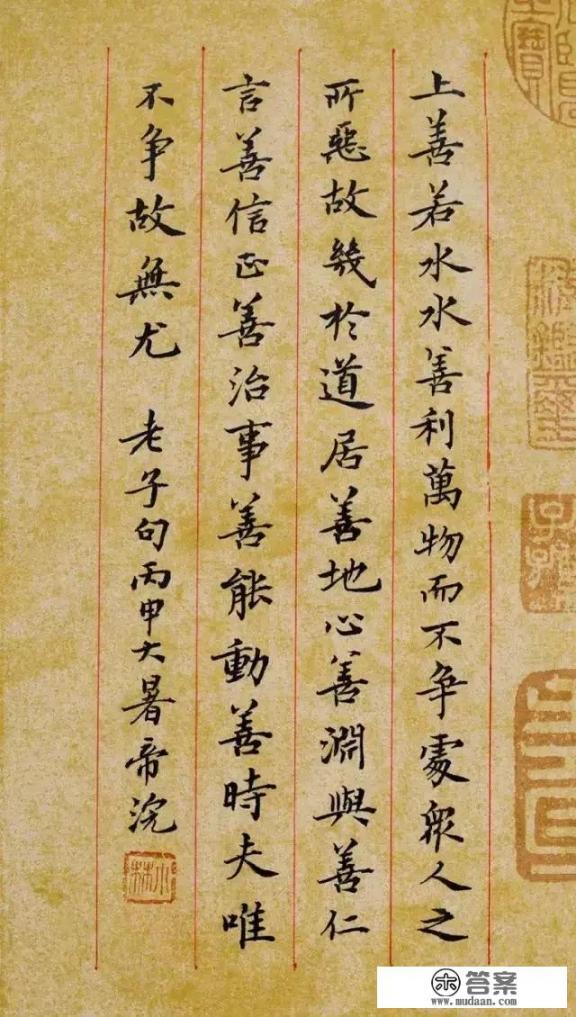 上善若水水善利萬物而不争處衆人之
所惡故幾於道居善地心善淵與善仁
言善信正善治事善能動善時夫唯
不争故無尤 老子句丙申大暑帝浣
小林
木 答案
www.mudaan.com